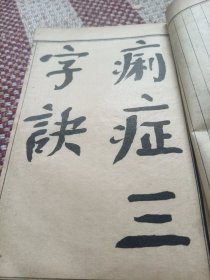 痢症三
字訣